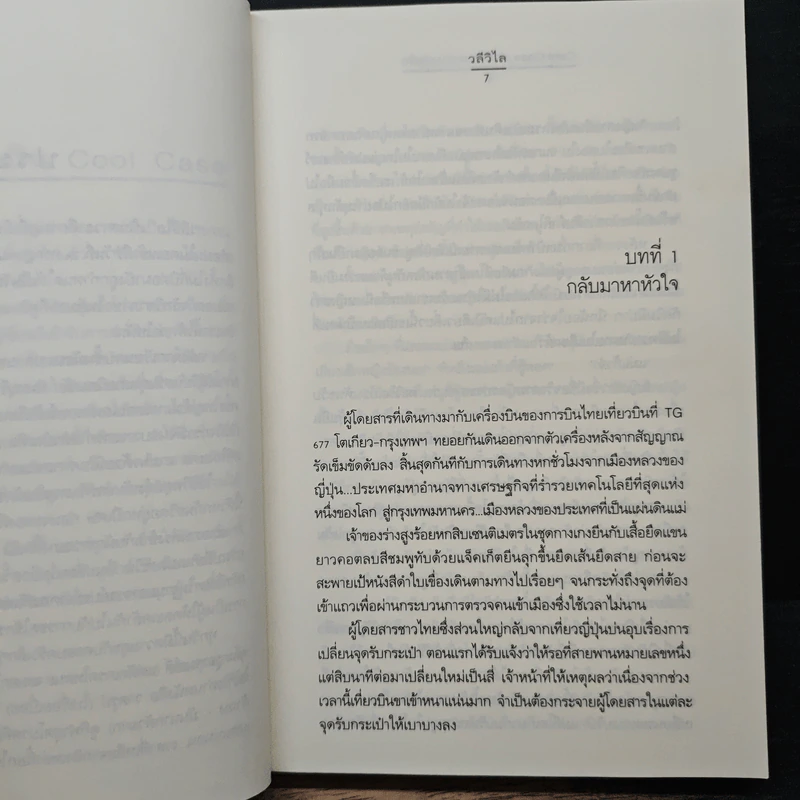 วลีวิไล
7
บทที่ 1
กลับมาหาหัวใจ
ผู้โดยสารที่เดินทางมากับเครื่องบินของการบินไทยเที่ยวบินที่ TG
677 โตเกียว-กรุงเทพฯ ทยอยกันเดินออกจากตัวเครื่องหลังจากสัญญาณ
รัดเข็มขัดดับลง สิ้นสุดกันทีกับการเดินทางหกชั่วโมงจากเมืองหลวงของ
ญี่ปุ่น...ประเทศมหาอำนาจทางเศรษฐกิจที่ร่ำรวยเทคโนโลยีที่สุดแห่ง
หนึ่งของโลก สู่กรุงเทพมหานคร...เมืองหลวงของประเทศที่เป็นแผ่นดินแม่
เจ้าของร่างสูงร้อยหกสิบเซนติเมตรในชุดกางเกงยีนกับเสื้อยืดแขน
ยาวคอตลบสีชมพูทับด้วยแจ็คเก็ตยีนลุกขึ้นยืดเส้นยืดสาย ก่อนจะ
สะพายเป้หนังสีดำใบเขื่องเดินตามทางไปเรื่อยๆ จนกระทั่งถึงจุดที่ต้อง
เข้าแถวเพื่อผ่านกระบวนการตรวจคนเข้าเมืองซึ่งใช้เวลาไม่นาน
ผู้โดยสารชาวไทยซึ่งส่วนใหญ่กลับจากเที่ยวญี่ปุ่นบ่นอุบเรื่องการ
เปลี่ยนจุดรับกระเป๋า ตอนแรกได้รับแจ้งว่าให้รอที่สายพานหมายเลขหนึ่ง
แต่สิบนาทีต่อมาเปลี่ยนใหม่เป็นสี่ เจ้าหน้าที่ให้เหตุผลว่าเนื่องจากช่วง
เวลานี้เที่ยวบินขาเข้าหนาแน่นมาก จำเป็นต้องกระจายผู้โดยสารในแต่ละ
จุดรับกระเป๋าให้เบาบางลง